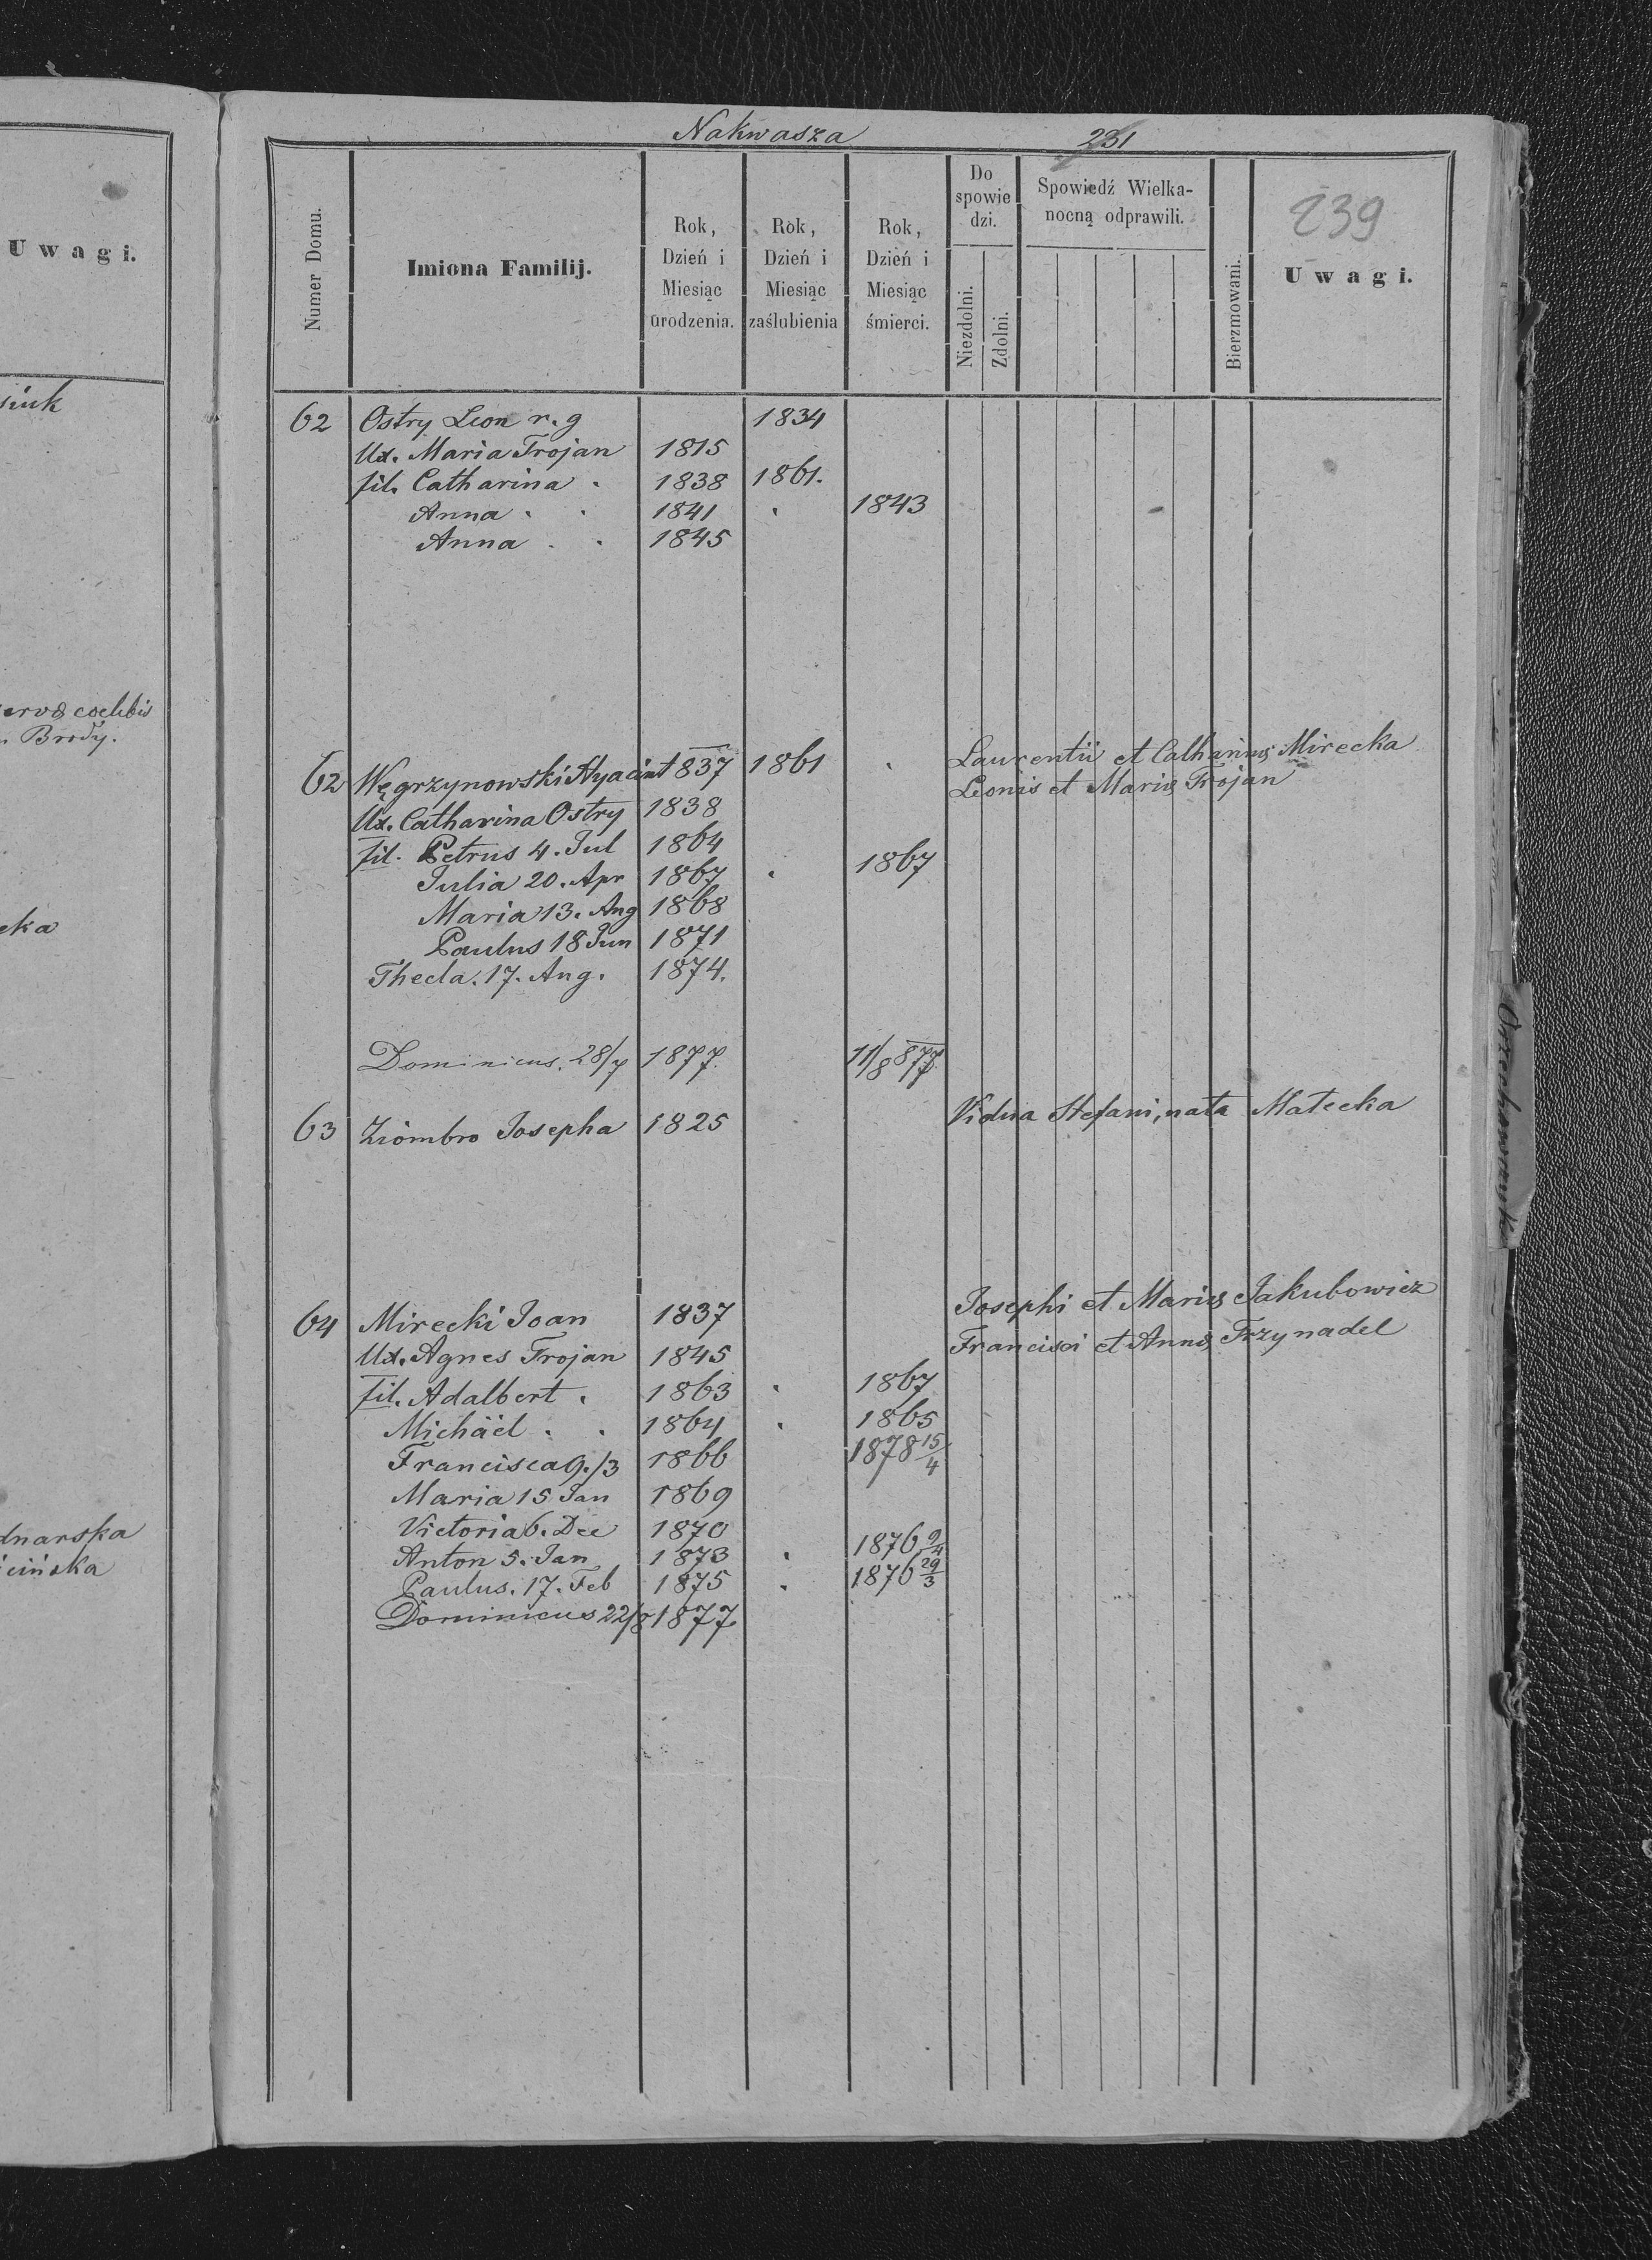 Uwagi.
Brody.
Nakwasza 231
239
Numer Domu.
Imiona Familij.
Rok, Dzień i Miesiąc urodzenia.
Rok, Dzień i Miesiąc zaślubienia
Rok, Dzień i Miesiąc śmierci.
Do spowie dzi.
Niezdolni.
Zdolni.
Spowiedź Wielka-
nocną odprawili.
Bierzmowani.
Uwagi.
62 Ostry Leon r. g 1834
Ux. Maria Trojan 1815
fil. Catharina 1838 1861.
Anna 1841 1843
Anna 1845
62 Węgrzynowski Hyacint 837 1861 Laurentii et Catharinę Mirecka
Ux. Catharina Ostry 1838 Leonis et Marię Trojan
fil. Petrus 4. Jul 1864
Julia 20. Apr 1867 1867
Maria 13. Aug 1868
Paulus 18 Jun 1871
Thecla. 17. Aug. 1874.
Dominicus. 28/7 1877. 11/8 877
63 Ziombro Josepha 1825 Vidua Stefani, nata Matecka
64 Mirecki Joan 1837 Josephi et Marię Jakubowicz
Ux. Agnes Trojan 1845 Francisci et Annę Trzynadel
fil. Adalbert. 1863 1867
Michäel 1864 1865
Francisca 9./3 1866 1878 15/4
Maria 15 Jan 1869
Victoria 6. Dec 1870
Anton 5. Jan 1873 1876 9/4
Paulus. 17. Feb 1875 1876 29/3
Dominicus 22/8 1877